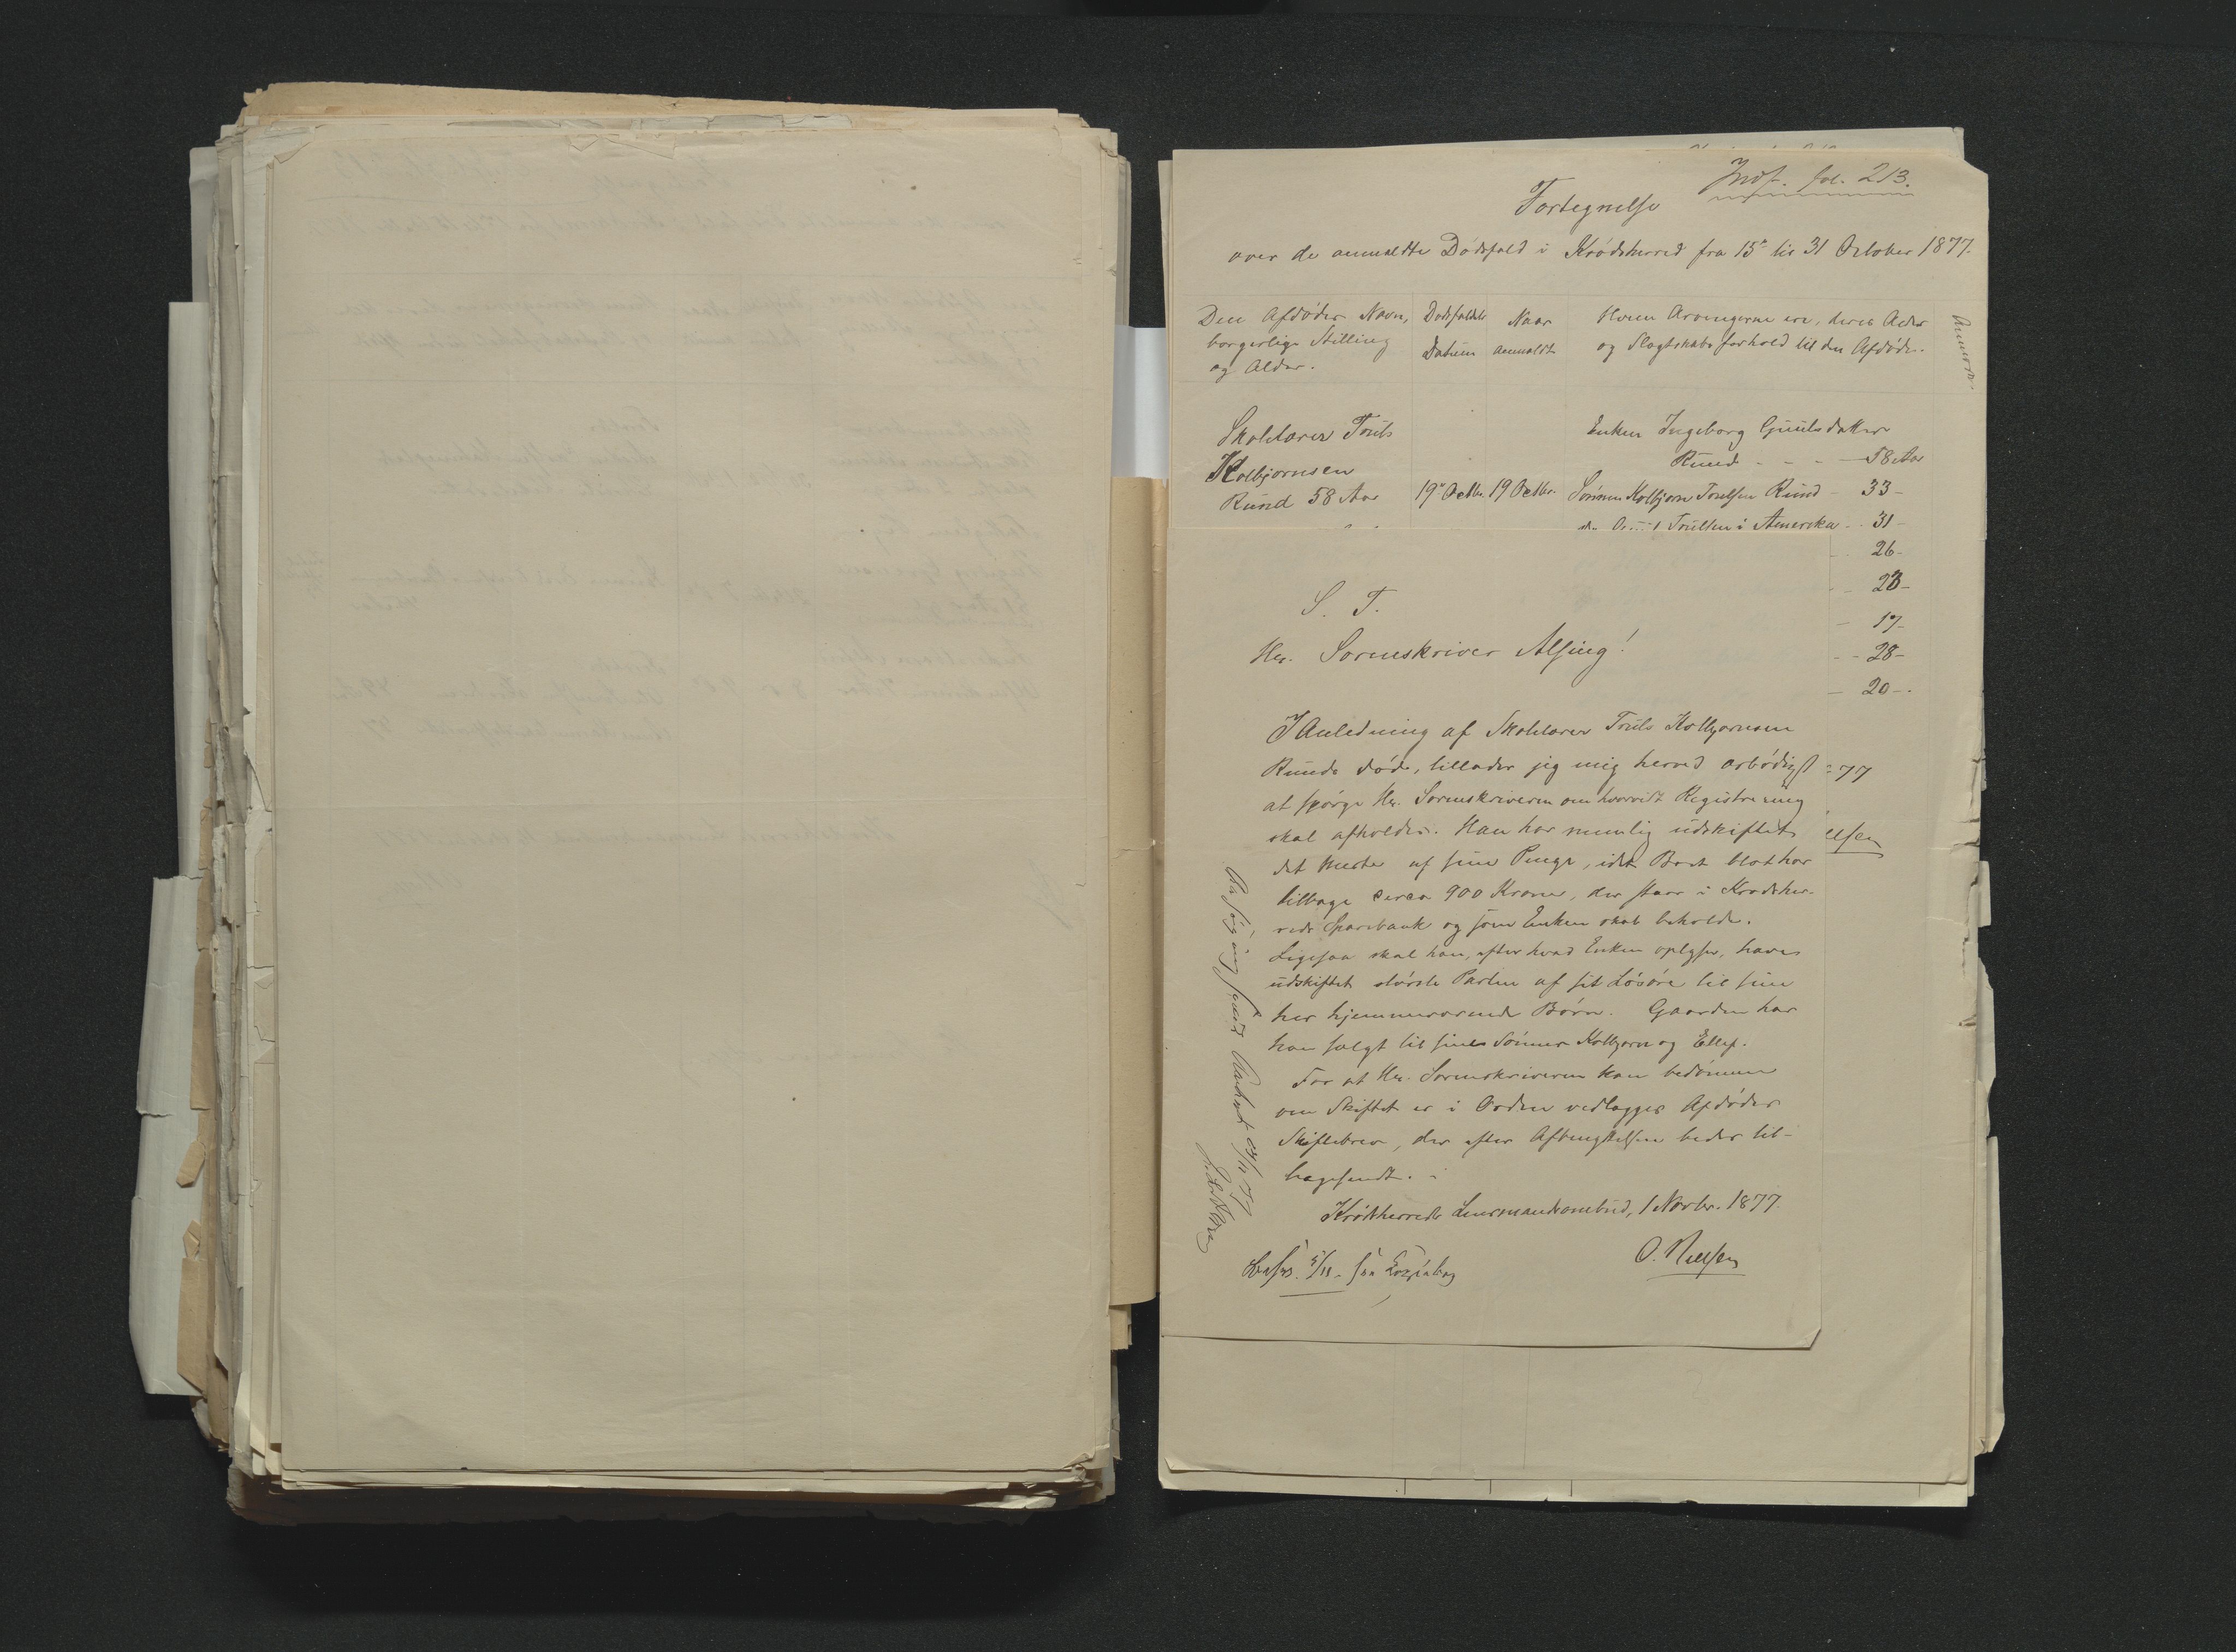 Indf. fol. 213.
Fortegnelse
over de anmeldte Dødsfald i Krødsherred fra 15de til 31 October 1877.
Den Afdødes Navn,
borgerlige Stilling
og Alder.
Dødsfaldets
Datum
Naar
anmeldt
Hvem Arvingerne ere, deres Alder
og Slægtskabsforhold til den Afdøde.
Anmærkn.
Skolelærer Truls
Kolbjørnsen
Ruud 58 Aar
19de Octbr.
19 Octbr.
Enken Ingeborg Guulsdatter
Ruud - - - 58 Aar
Sønnen Kolbjørn Trulsen Ruud - 33 -
Trulsen i Amerika - 31 -
26 -
23 -
17 -
28 -
20 - .
77
elsen
S. T.
Hr. Sorenskriver Alsing!
I Anledning af Skolelærer Truls Kolbjørnsen
Ruuds Død, tillader jeg mig herved ærbødigst
at spørge Hr. Sorenskriveren om hvorvidt Registrering
skal afholdes. Han har nemlig udskiftet
det meste af sine Penge, idet Boet blot har
tilbage circa 900 Kroner, der staar i Krødsher-
reds Sparebank og som Enken skal beholde.
Ligesaa skal han, efter hvad Enken oplyser, have
udskiftet største Parten af sit Løsøre til sine
her hjemmeværende Børn. Gaarden har
han solgt til sine Sønner Kolbjørn og Ellef.
For at Hr. Sorenskriveren kan bedømme
om Skiftet er i Orden vedlægges Afdødes
Skiftebrev, der efter Afbenyttelsen bedes til-
bagesendt.
Krødsherreds Lensmandsombud, 1 Novbr. 1877.
O. Nielsen
Besv. 5/11